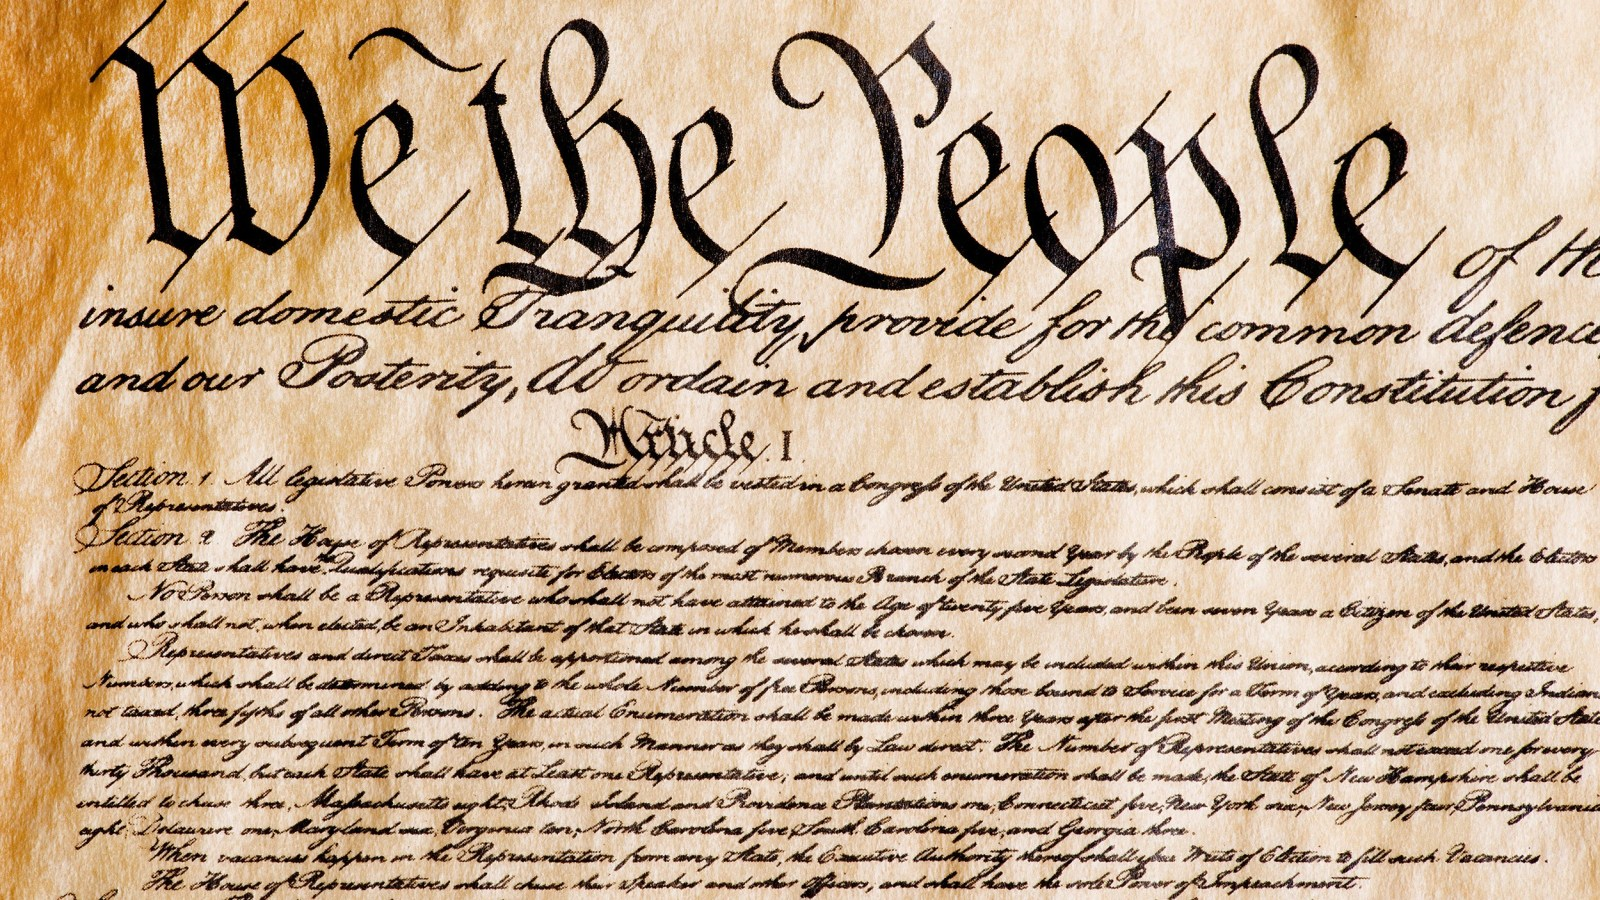 We the People of the
insure domestic Tranquility, provide for the common defence,
and our Posterity, do ordain and establish this Constitution f
Article. I.
Section. 1. All legislative Powers herein granted shall be vested in a Congress of the United States, which shall consist of a Senate and House
of Representatives.
Section. 2. The House of Representatives shall be composed of Members chosen every second Year by the People of the several States, and the Electors
in each State shall have the Qualifications requisite for Electors of the most numerous Branch of the State Legislature.
No Person shall be a Representative who shall not have attained to the Age of twenty five Years, and been seven Years a Citizen of the United States,
and who shall not, when elected, be an Inhabitant of that State in which he shall be chosen.
Representatives and direct Taxes shall be apportioned among the several States which may be included within this Union, according to their respective
Numbers, which shall be determined by adding to the whole Number of free Persons, including those bound to Service for a Term of Years, and excluding Indians
not taxed, three fifths of all other Persons. The actual Enumeration shall be made within three Years after the first Meeting of the Congress of the United State
and within every subsequent Term of ten Years, in such Manner as they shall by Law direct. The Number of Representatives shall not exceed one for every
thirty Thousand, but each State shall have at Least one Representative; and until such enumeration shall be made, the State of New Hampshire shall be
entitled to chuse three, Massachusetts eight, Rhode Island and Providence Plantations one, Connecticut five, New York six, New Jersey four, Pennsylvania
eight, Delaware one, Maryland six, Virginia ten, North Carolina five, South Carolina five, and Georgia three.
When vacancies happen in the Representation from any State, the Executive Authority thereof shall issue Writs of Election to fill such Vacancies.
The House of Representatives shall chuse their Speaker and other Officers; and shall have the sole Power of Impeachment.